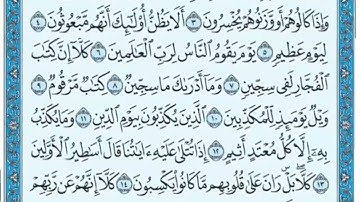 وَإِذَا كَالُوهُمْ أَو وَّزَنُوهُمْ يُخْسِرُونَ ٣ أَلَا يَظُنُّ أُوْلَٰٓئِكَ أَنَّهُم مَّبْعُوثُونَ ٤
لِيَوْمٍ عَظِيمٍ ٥ يَوْمَ يَقُومُ ٱلنَّاسُ لِرَبِّ ٱلْعَٰلَمِينَ ٦ كَلَّآ إِنَّ كِتَٰبَ
ٱلْفُجَّارِ لَفِى سِجِّينٍ ٧ وَمَآ أَدْرَىٰكَ مَا سِجِّينٌ ٨ كِتَٰبٌ مَّرْقُومٌ ٩
وَيْلٌ يَوْمَئِذٍ لِّلْمُكَذِّبِينَ ١٠ ٱلَّذِينَ يُكَذِّبُونَ بِيَوْمِ ٱلدِّينِ ١١ وَمَا يُكَذِّبُ
بِهِۦٓ إِلَّا كُلُّ مُعْتَدٍ أَثِيمٍ ١٢ إِذَا تُتْلَىٰ عَلَيْهِ ءَايَٰتُنَا قَالَ أَسَٰطِيرُ ٱلْأَوَّلِينَ
١٣ كَلَّا بَلْ رَانَ عَلَىٰ قُلُوبِهِم مَّا كَانُوا۟ يَكْسِبُونَ ١٤ كَلَّآ إِنَّهُمْ عَن رَّبِّهِمْ